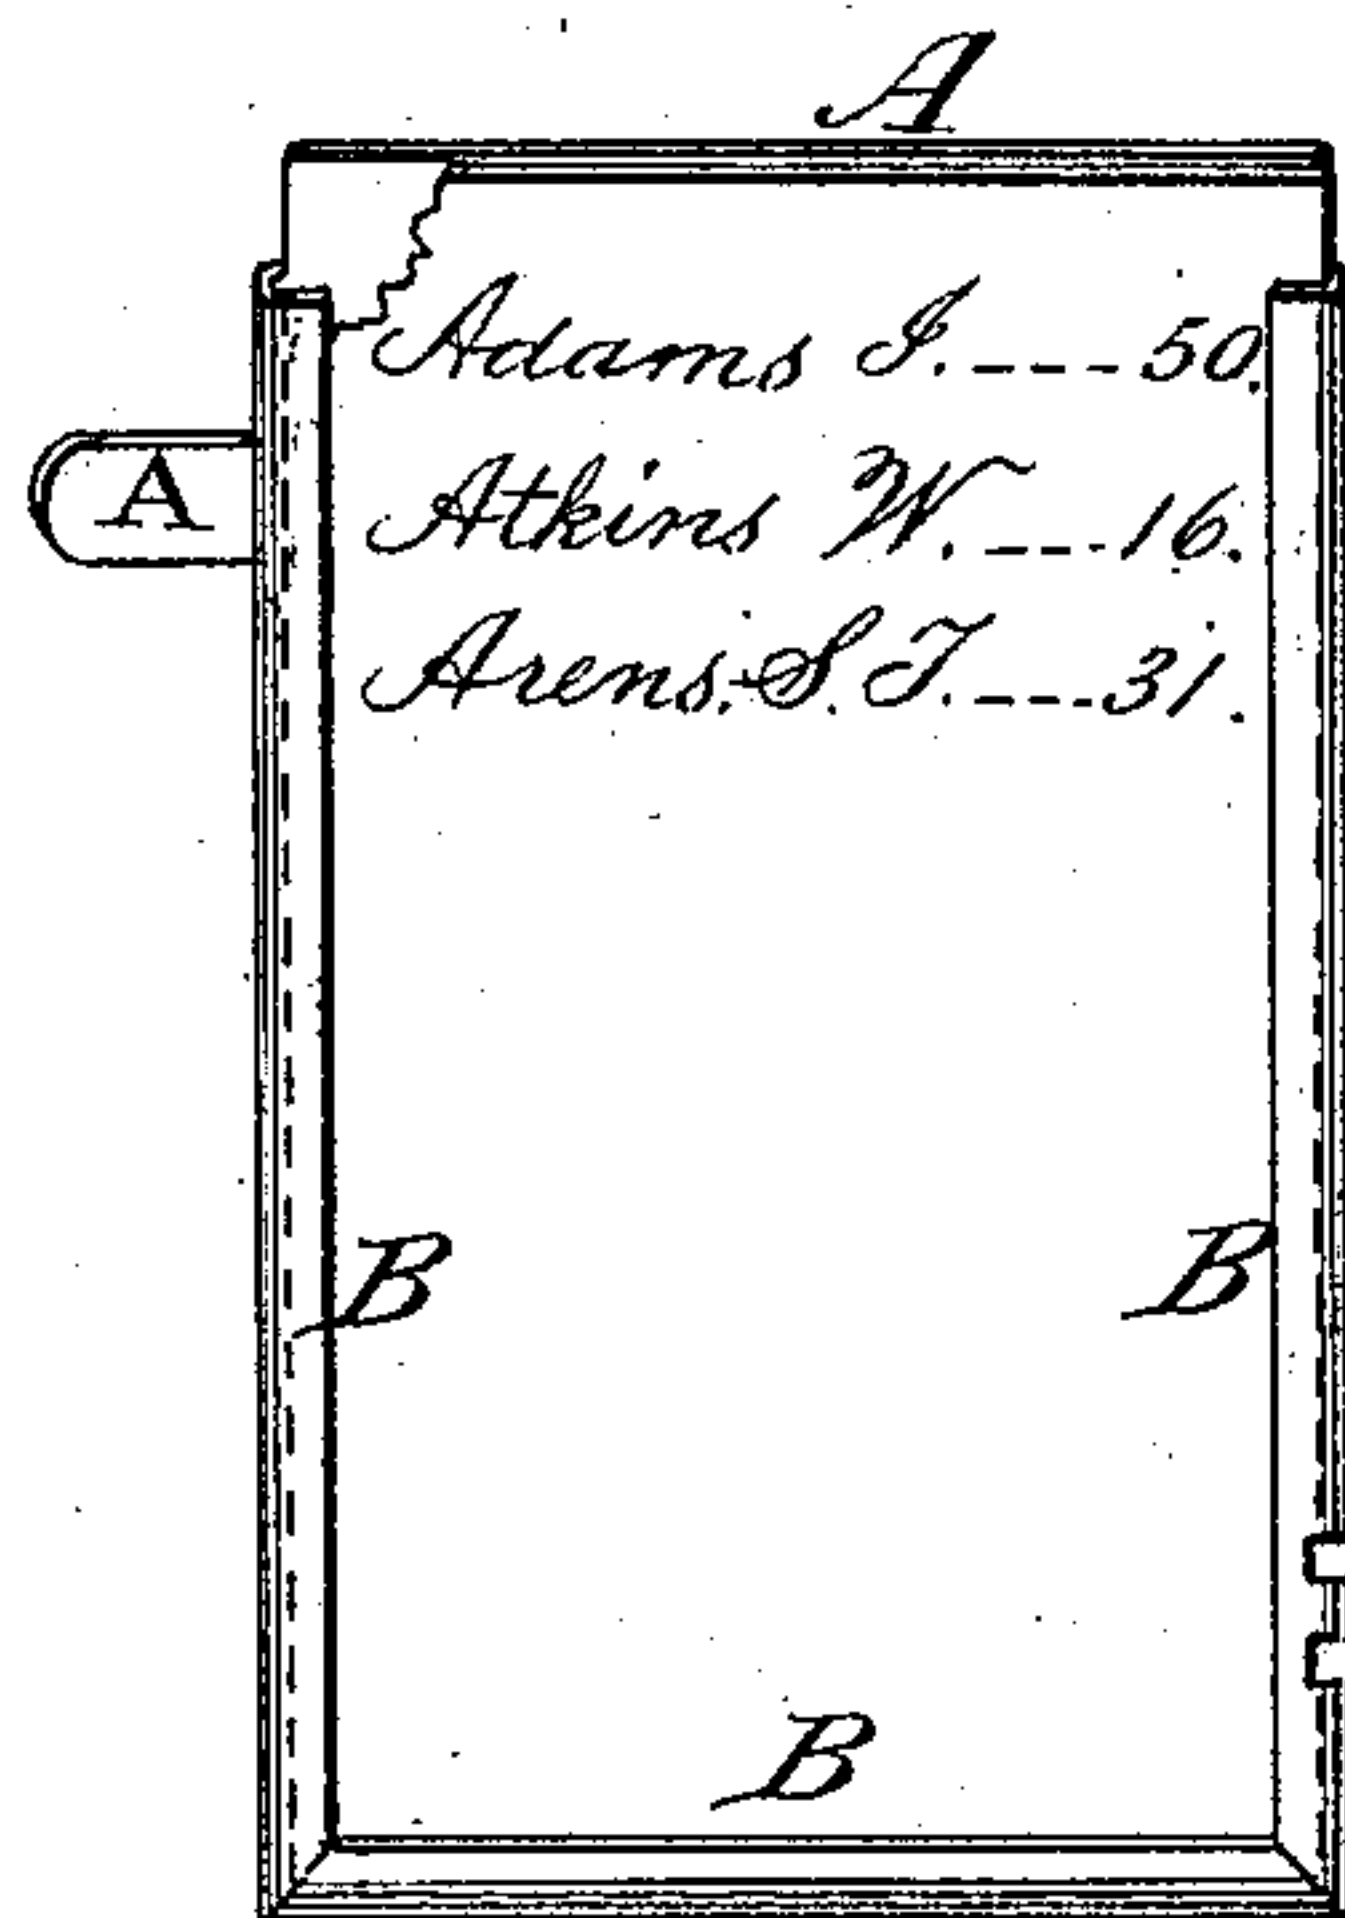 A
Adams I. --- 50.
A
Atkins W. --- 16.
Arens. S. T. --- 31.
B
B
B